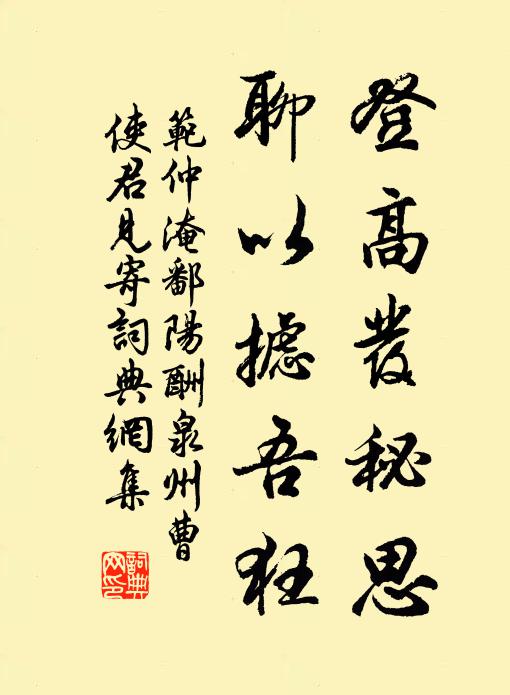 登高發秘思
聊以攄吾狂
範仲淹鄱陽酬泉州曹
使君見寄詞典網集
詞典
網印